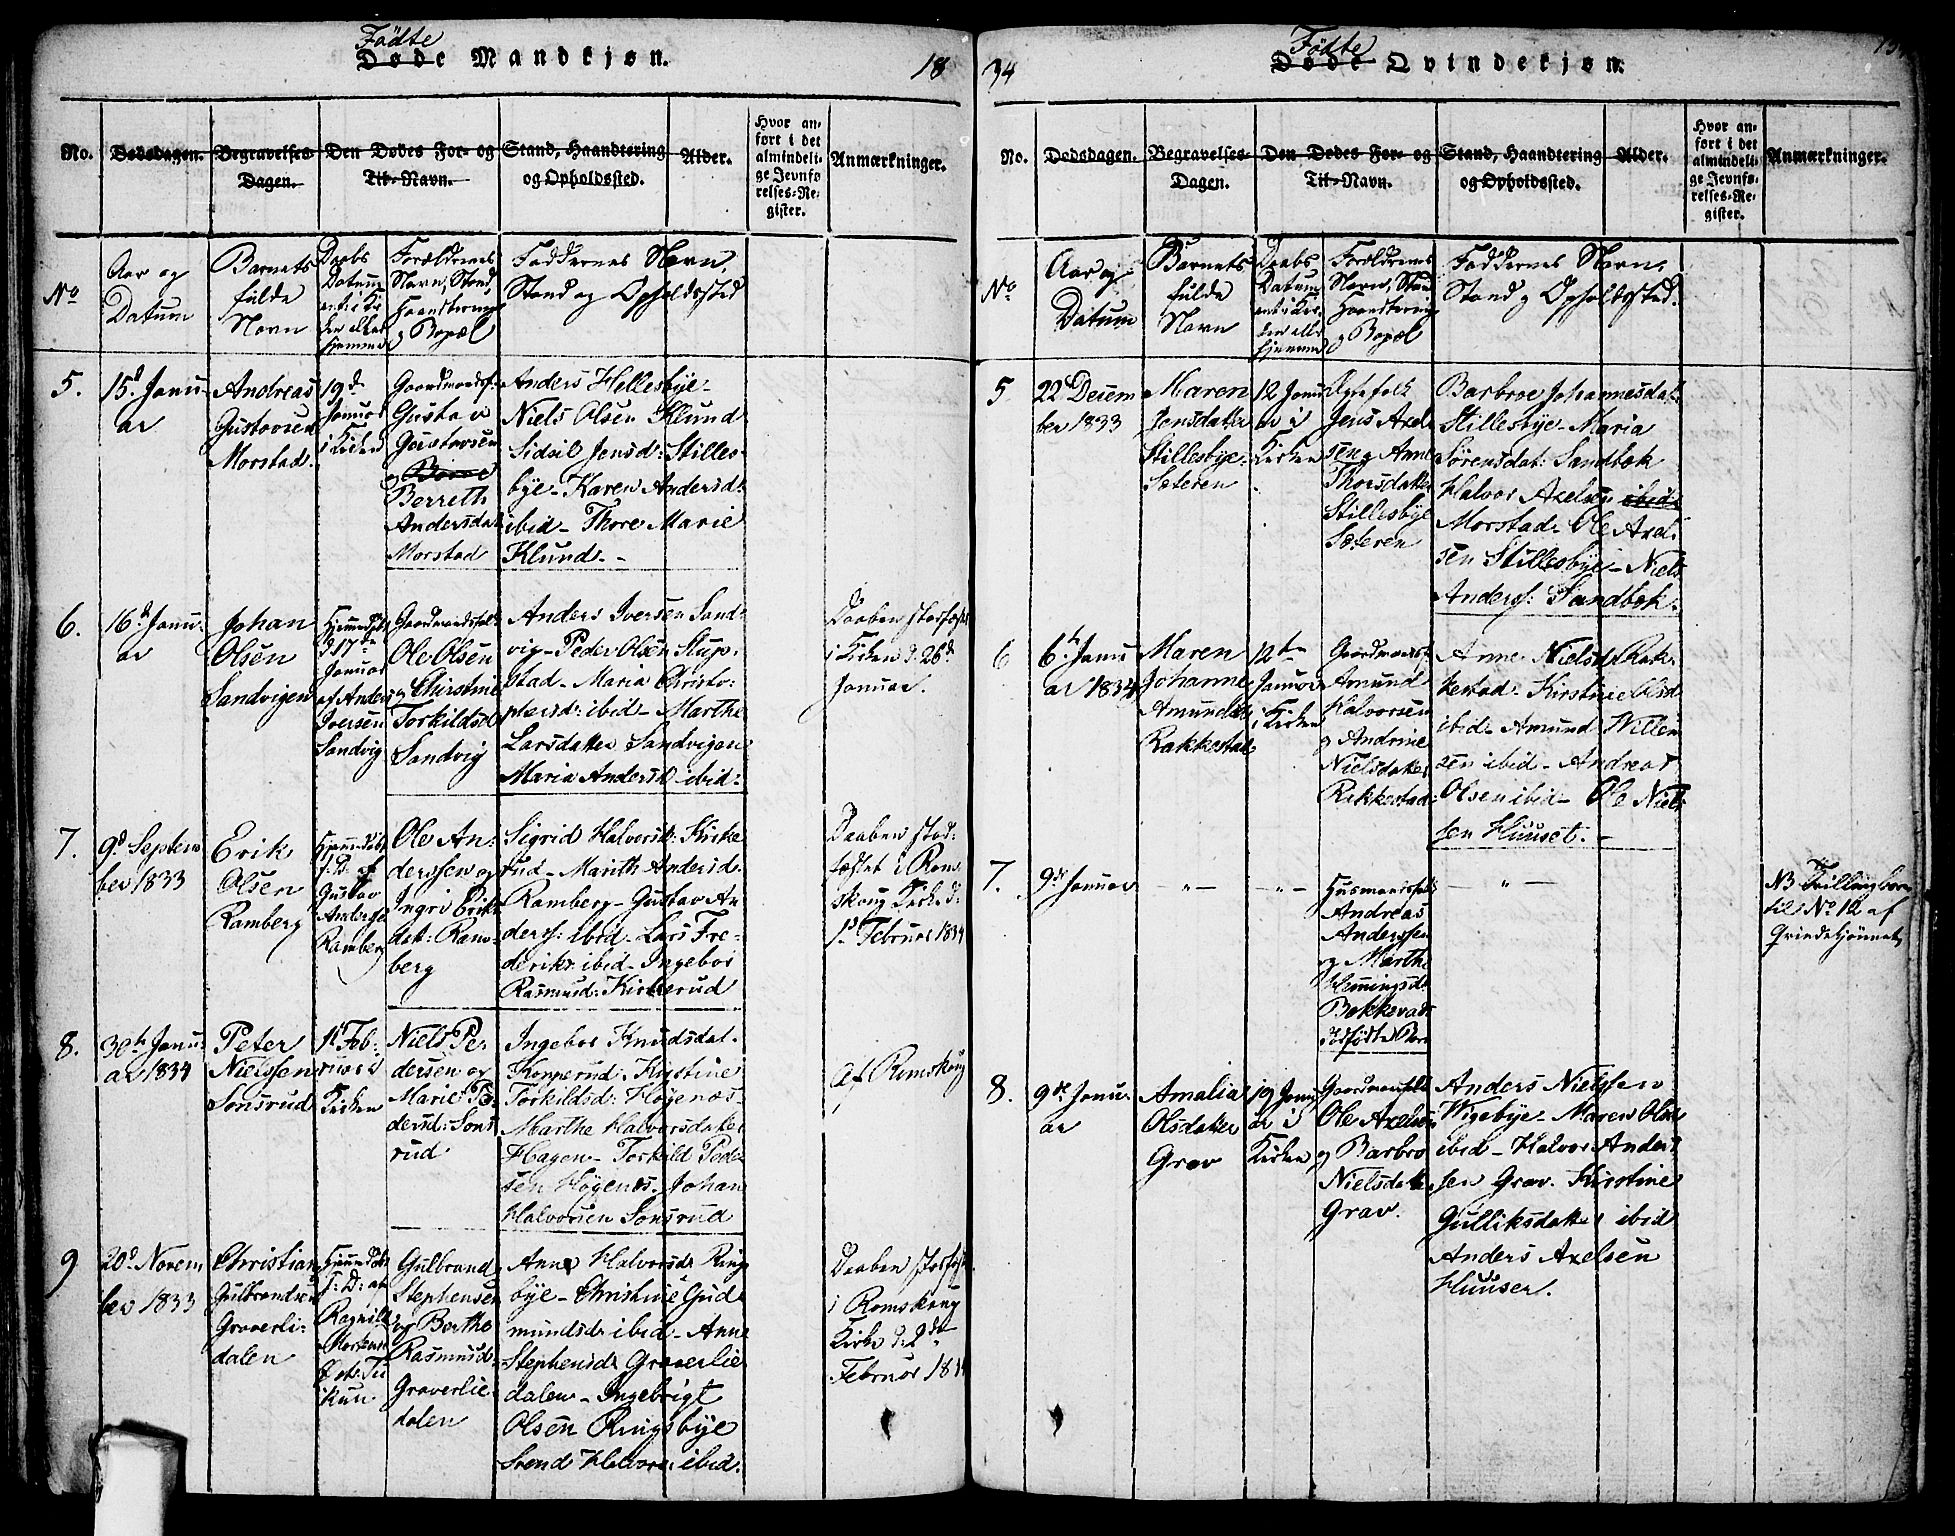 Fødte
Døde Mandkjøn.
18
No.
Dødsdagen.
Begravelses-
Dagen.
Den Dødes For- og
Til-Navn.
Stand, Haandtering
og Opholdssted.
Alder.
Hvor an-
ført i det
almindeli-
ge Jevnfø-
relses-Re-
gister.
Anmærkninger.
No
Aar og
Datum
Barnets
fulde
Navn
Daabs
Datum
enten i Kir
ken eller
hjemme
Forældrenes
Navn, Stand,
Haandtering
og Bopæl
Faddernes Navn,
Stand og Opholdssted
5.
15d Janu-
ar
Andreas
Gustavsen
Morstad.
19d
Januar
i Kirken
Gaardmandsf:
Gustav
Gustavsen
og Berthe
Berreth
Andersdat
Morstad
Anders Hellesbye-
Niels Olsen Klund
Sidsil Jensd: Stilles-
bye- Karen Andersd:
ibid- Thore Marie
Klund. -
6.
16d Janu-
ar
Johan
Olsen
Sandvigen
Hjemmedøbt
d 17de
Januar
af Anders
Iversen
Sandvig
Gaardmandsfolk
Ole Olsen
og Chirstine
Torkildsd
Sandvig
Anders Iversen Sand-
vig- Peder Olsen Stup-
stad- Maria Christo-
phersd: ibid- Marthe
Larsdatter Sandvigen
Maria Andersd ibid:
Daaben stadfæst
i Kirken d: 26d
Januar.
7.
9d Septem
ber 1833
Erik
Olsen
Ramberg
Hjemmedøbt
s. D. af
Gustav
Anderse
Ramberg
Ole An-
derssen og
Ingri Eriks
dat: Ram-
berg
Sigrid Halvorsd: Kirke
rud- Marith Andersd.
Ramberg- Gustav An
derss: ibid- Lars Fre-
deriks: ibid- Ingebor
Rasmusd: Kirkerud
Daaben stad-
fæstet i Rom-
skoug Kirke d:
1d Februar 1834
8.
30te Janu-
ar 1834
Peter
Nielssen
Sonsrud
1st Feb-
ruar i
Kirken
Niels Pe-
dersen og
Marie Pe-
dersd: Sons
rud
Ingebor Knudsdat.
Kopperud- Kirstine
Torkildsd: Høgenæs-
Marthe Halvorsdatter
Hagen- Torkild Peder
sen Høgenæs- Johan
Halvorsen Sonsrud
Af Romskoug
9
20d Novem
ber 1833
Christian
Gulbrandsen
Graverli-
dalen
Hjemmedøbt
s: D: af
Ragnild
Mortens
Kun
Gulbrand
Stephensen
og Berthe
Rasmusd:
Graverlie-
dalen
Anne Halvorsd: Ring
bye- Christine Gud-
mundsd: ibid- Anne
Stephensd: Graverlie
dalen- Ingebrigt
Olsen Ringsbye
Svend Halvors: ibid.
Daaben stadfæst.
i Romskoug
Kirke d: 2de
Februar 1834
34
Fødte
Døde Qvindekjøn.
No.
Dødsdagen.
Begravelses-
Dagen.
Den Dødes For- og
Til-Navn.
Stand, Haandtering
og Opholdssted.
Alder.
Hvor an-
ført i det
almindeli-
ge Jevnfø-
relses-Re-
gister.
Anmærkninger.
No
Aar og
Datum
Barnets
fulde
Navn
Daabs
Datum
enten i Kir
ken eller
hjemme
Forældrenes
Navn, Stand
Haandtering
og Bopæl
Faddernes Navn,
Stand og Opholdssted.
5
22 Decem
ber 1833
Maren
Jensdatter
Stillesbye-
Sæteren
12 Janu
ar i
Kirken
Ægtefolk
Jens Axel-
sen og Anne
Thorsdatter
Stillesbye
Sæteren
Barbroe Johannesdat:
Stillesbye- Maria
Sørensdat: Sandbæk
Halvor Axelsen ibid:
Morstad- Ole Axel-
sen Stillesbye- Niels
Anderss: Sandbæk.
6
6te Janu
ar 1834
Maren
Johanne
Amundsdat
Rakkestad
12te
Januar
i Kirken
Gaardmandsf
Amund
Halvorsen
og Andrine
Nielsdatter
Rakkestad:
Anne Nielsd: Rak-
kestad- Kirstine Olsd
ibid- Amund Willum
sen ibid- Andreas
Olsen ibid- Ole Niel-
sen Huuset. -
7.
9de Januar
-"-
-"-
Husmandsfolk
Andreas
Anderssen
og Marthe
Hemmingsd
Bækkevad
Dødfødte Barn
- " -
NB Tvillingbarn
til No 12 af
Qvindekjønnet
8.
9de Janu-
ar
Amalia
Olsdatter
Grav
19 Janu
ar i
Kirken
Gaardmandsfolk
Ole Axelsen
og Barbro
Nielsdatter
Grav.
Anders Nielssen
Wigebye- Maren Olsd
ibid- Halvor Ander
sen Grav. Kirstine
Gulliksdatter ibid
Anders Axelsen
Huuser.